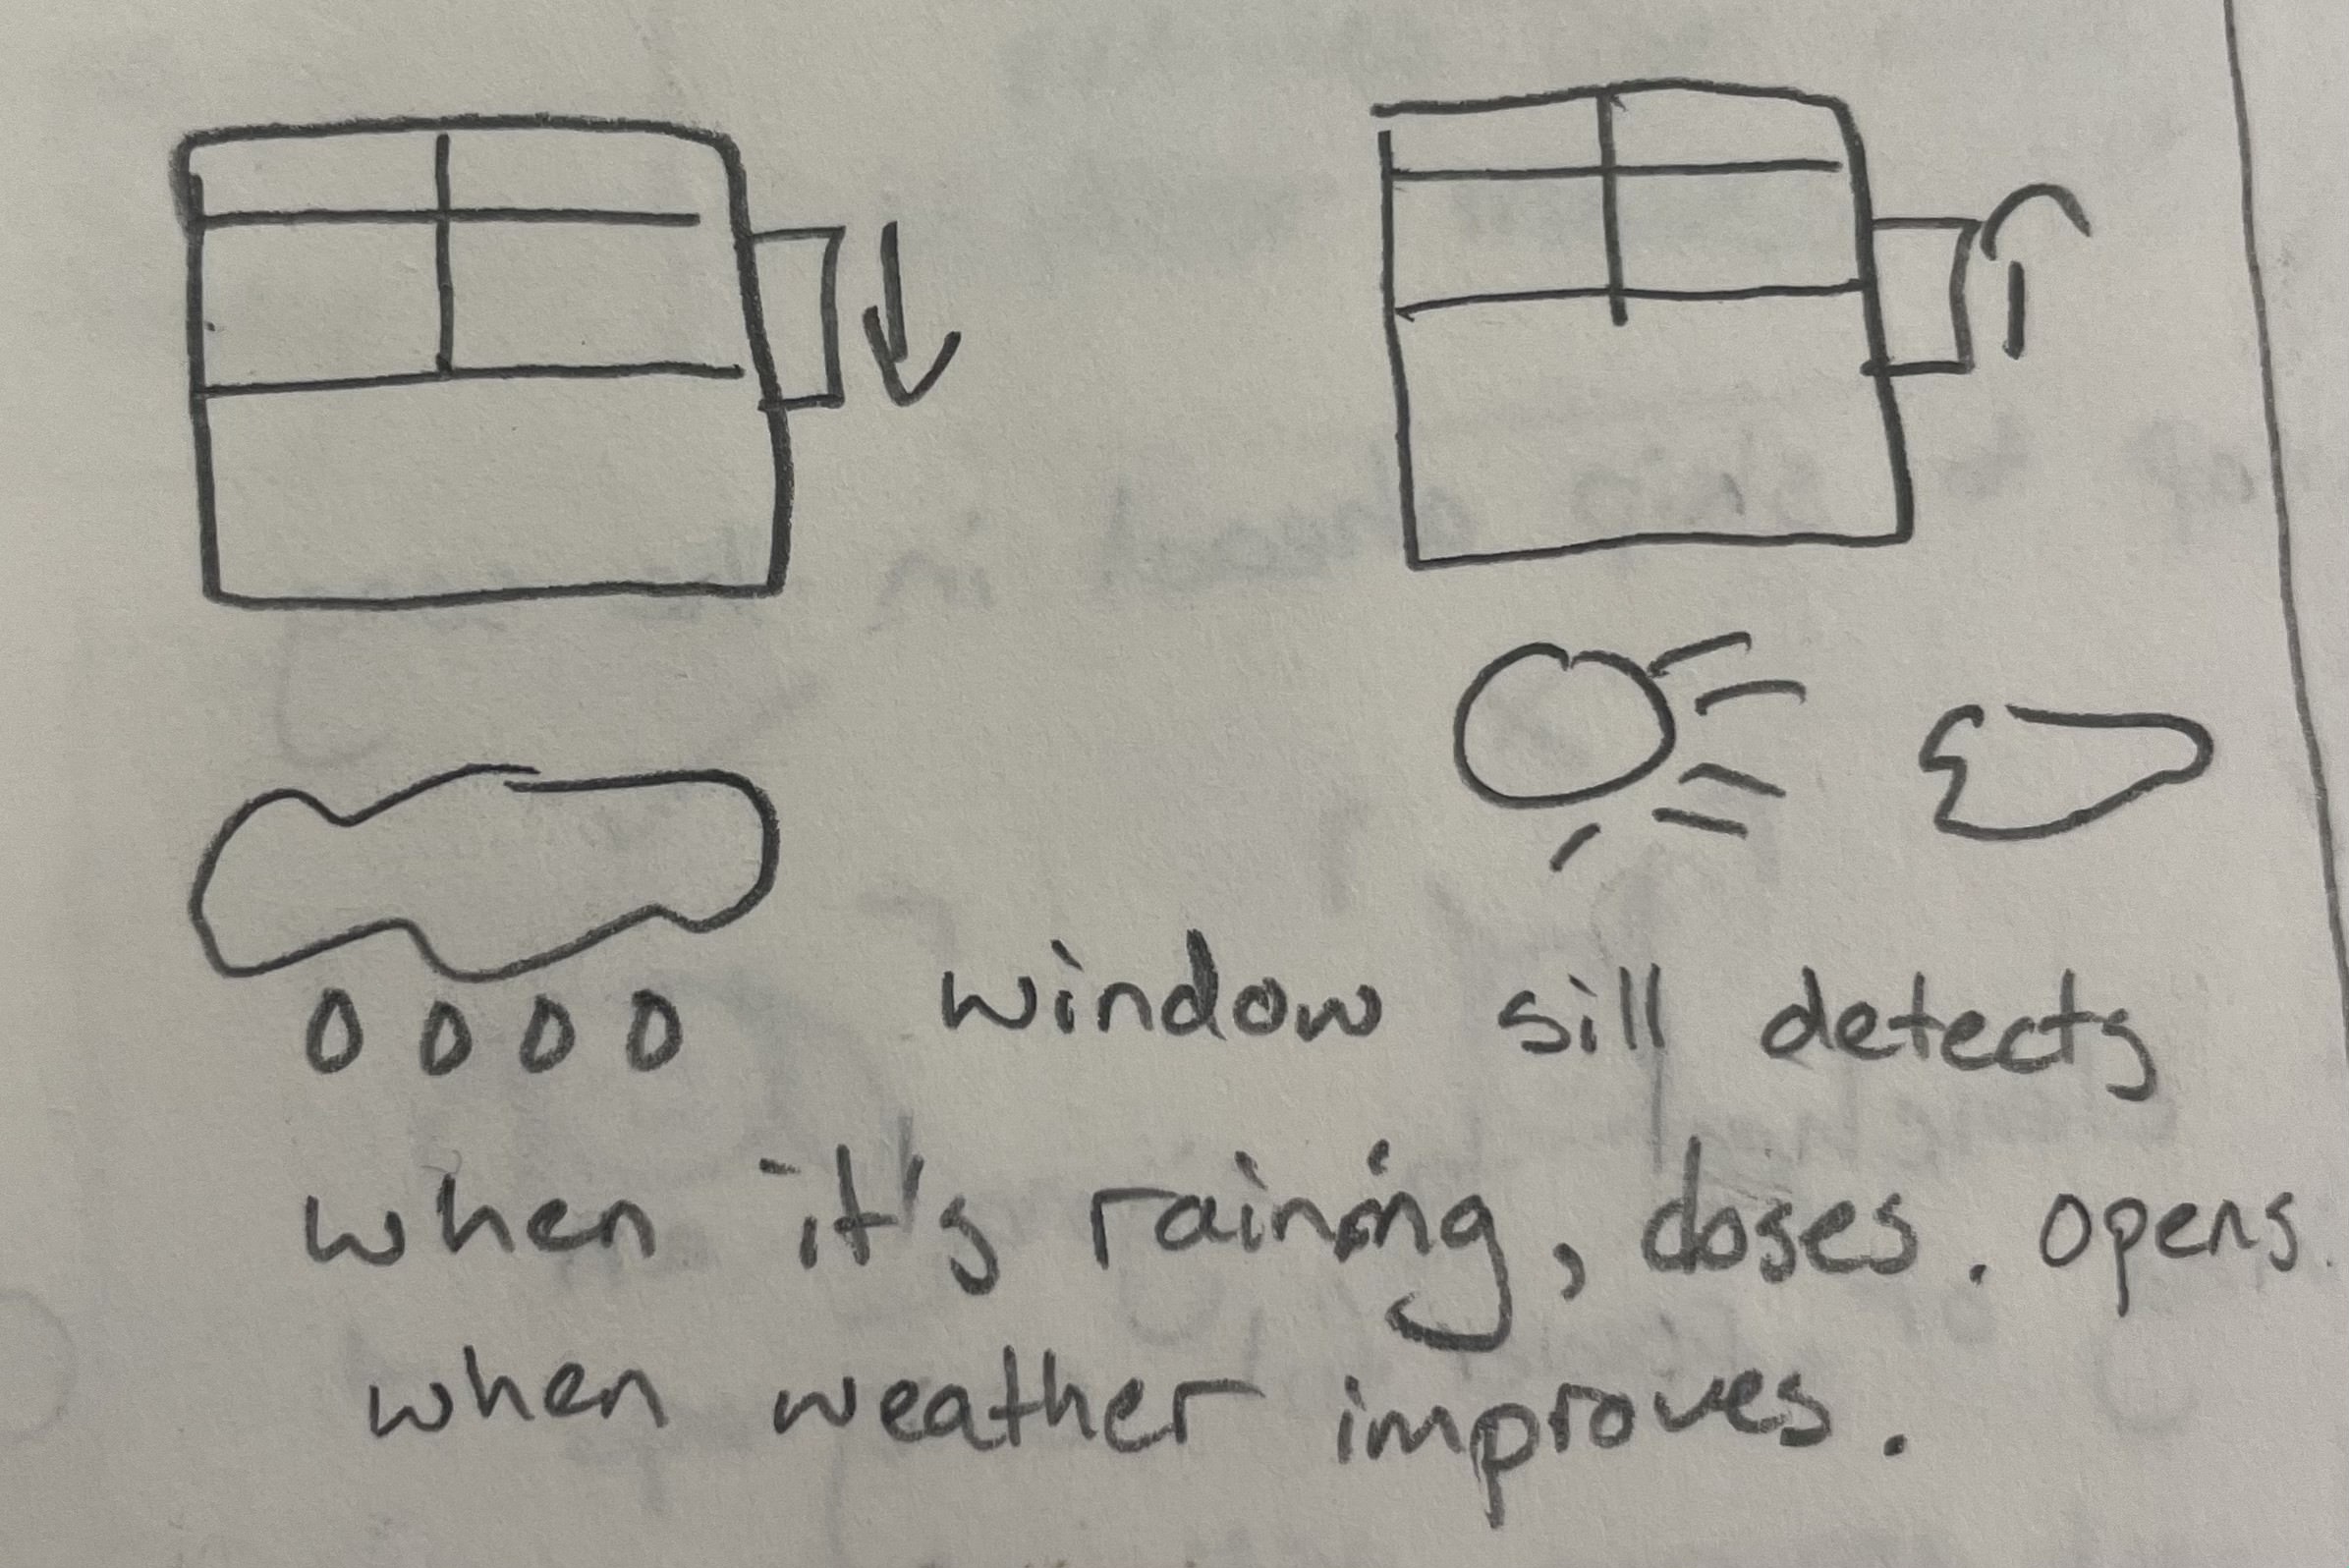 window sill detects
when it's raining, closes. opens
when weather improves.